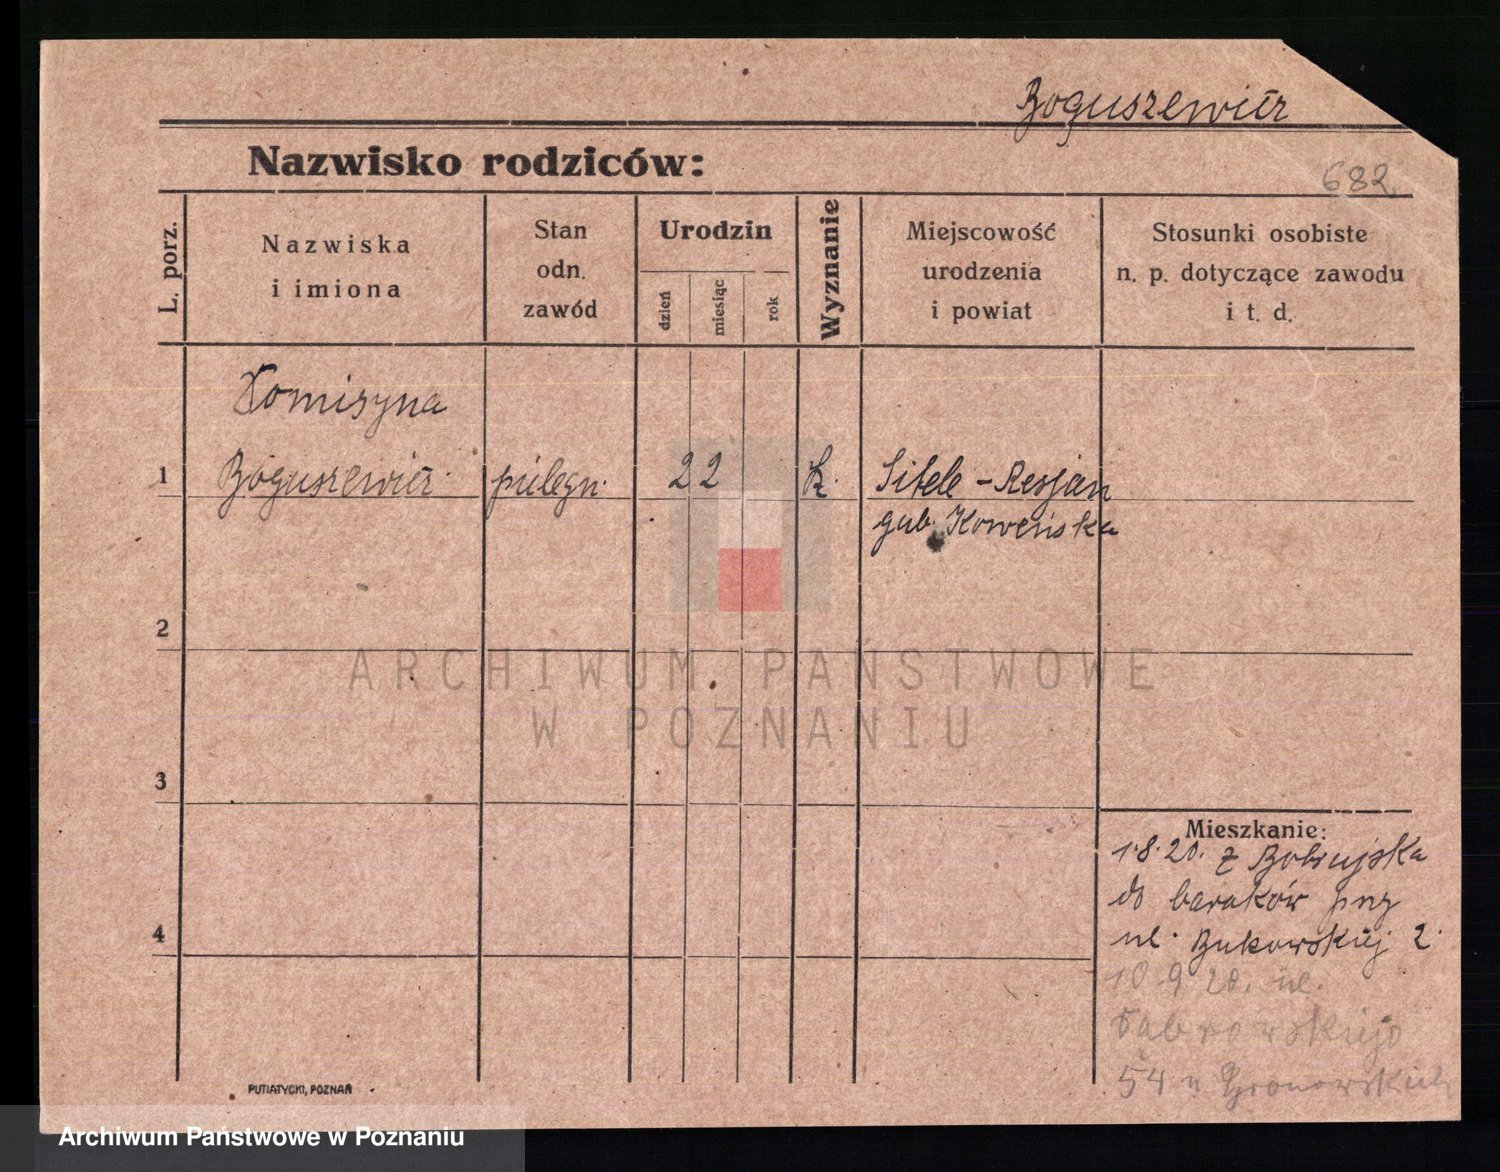 Boguszewicz
Nazwisko rodziców:
682.
L. porz.
Nazwiska
i imiona
Stan
odn.
zawód
Urodzin
dzień
miesiąc
rok
Wyznanie
Miejscowość
urodzenia
i powiat
Stosunki osobiste
n. p. dotyczące zawodu
i t. d.
1
Boguszewicz
pielęgn.
22
k.
gub. Koweńska
2
ARCHIWUM PAŃSTWOWE
W POZNANIU
3
Mieszkanie:
1.8.20. z Bobrujska
do baraków przy
ul. Bukowskiej 2.
4
10 9 20. ul.
Dąbrowskiego
54 u Gronowskich
PUTIATYCKI, POZNAŃ
Archiwum Państwowe w Poznaniu